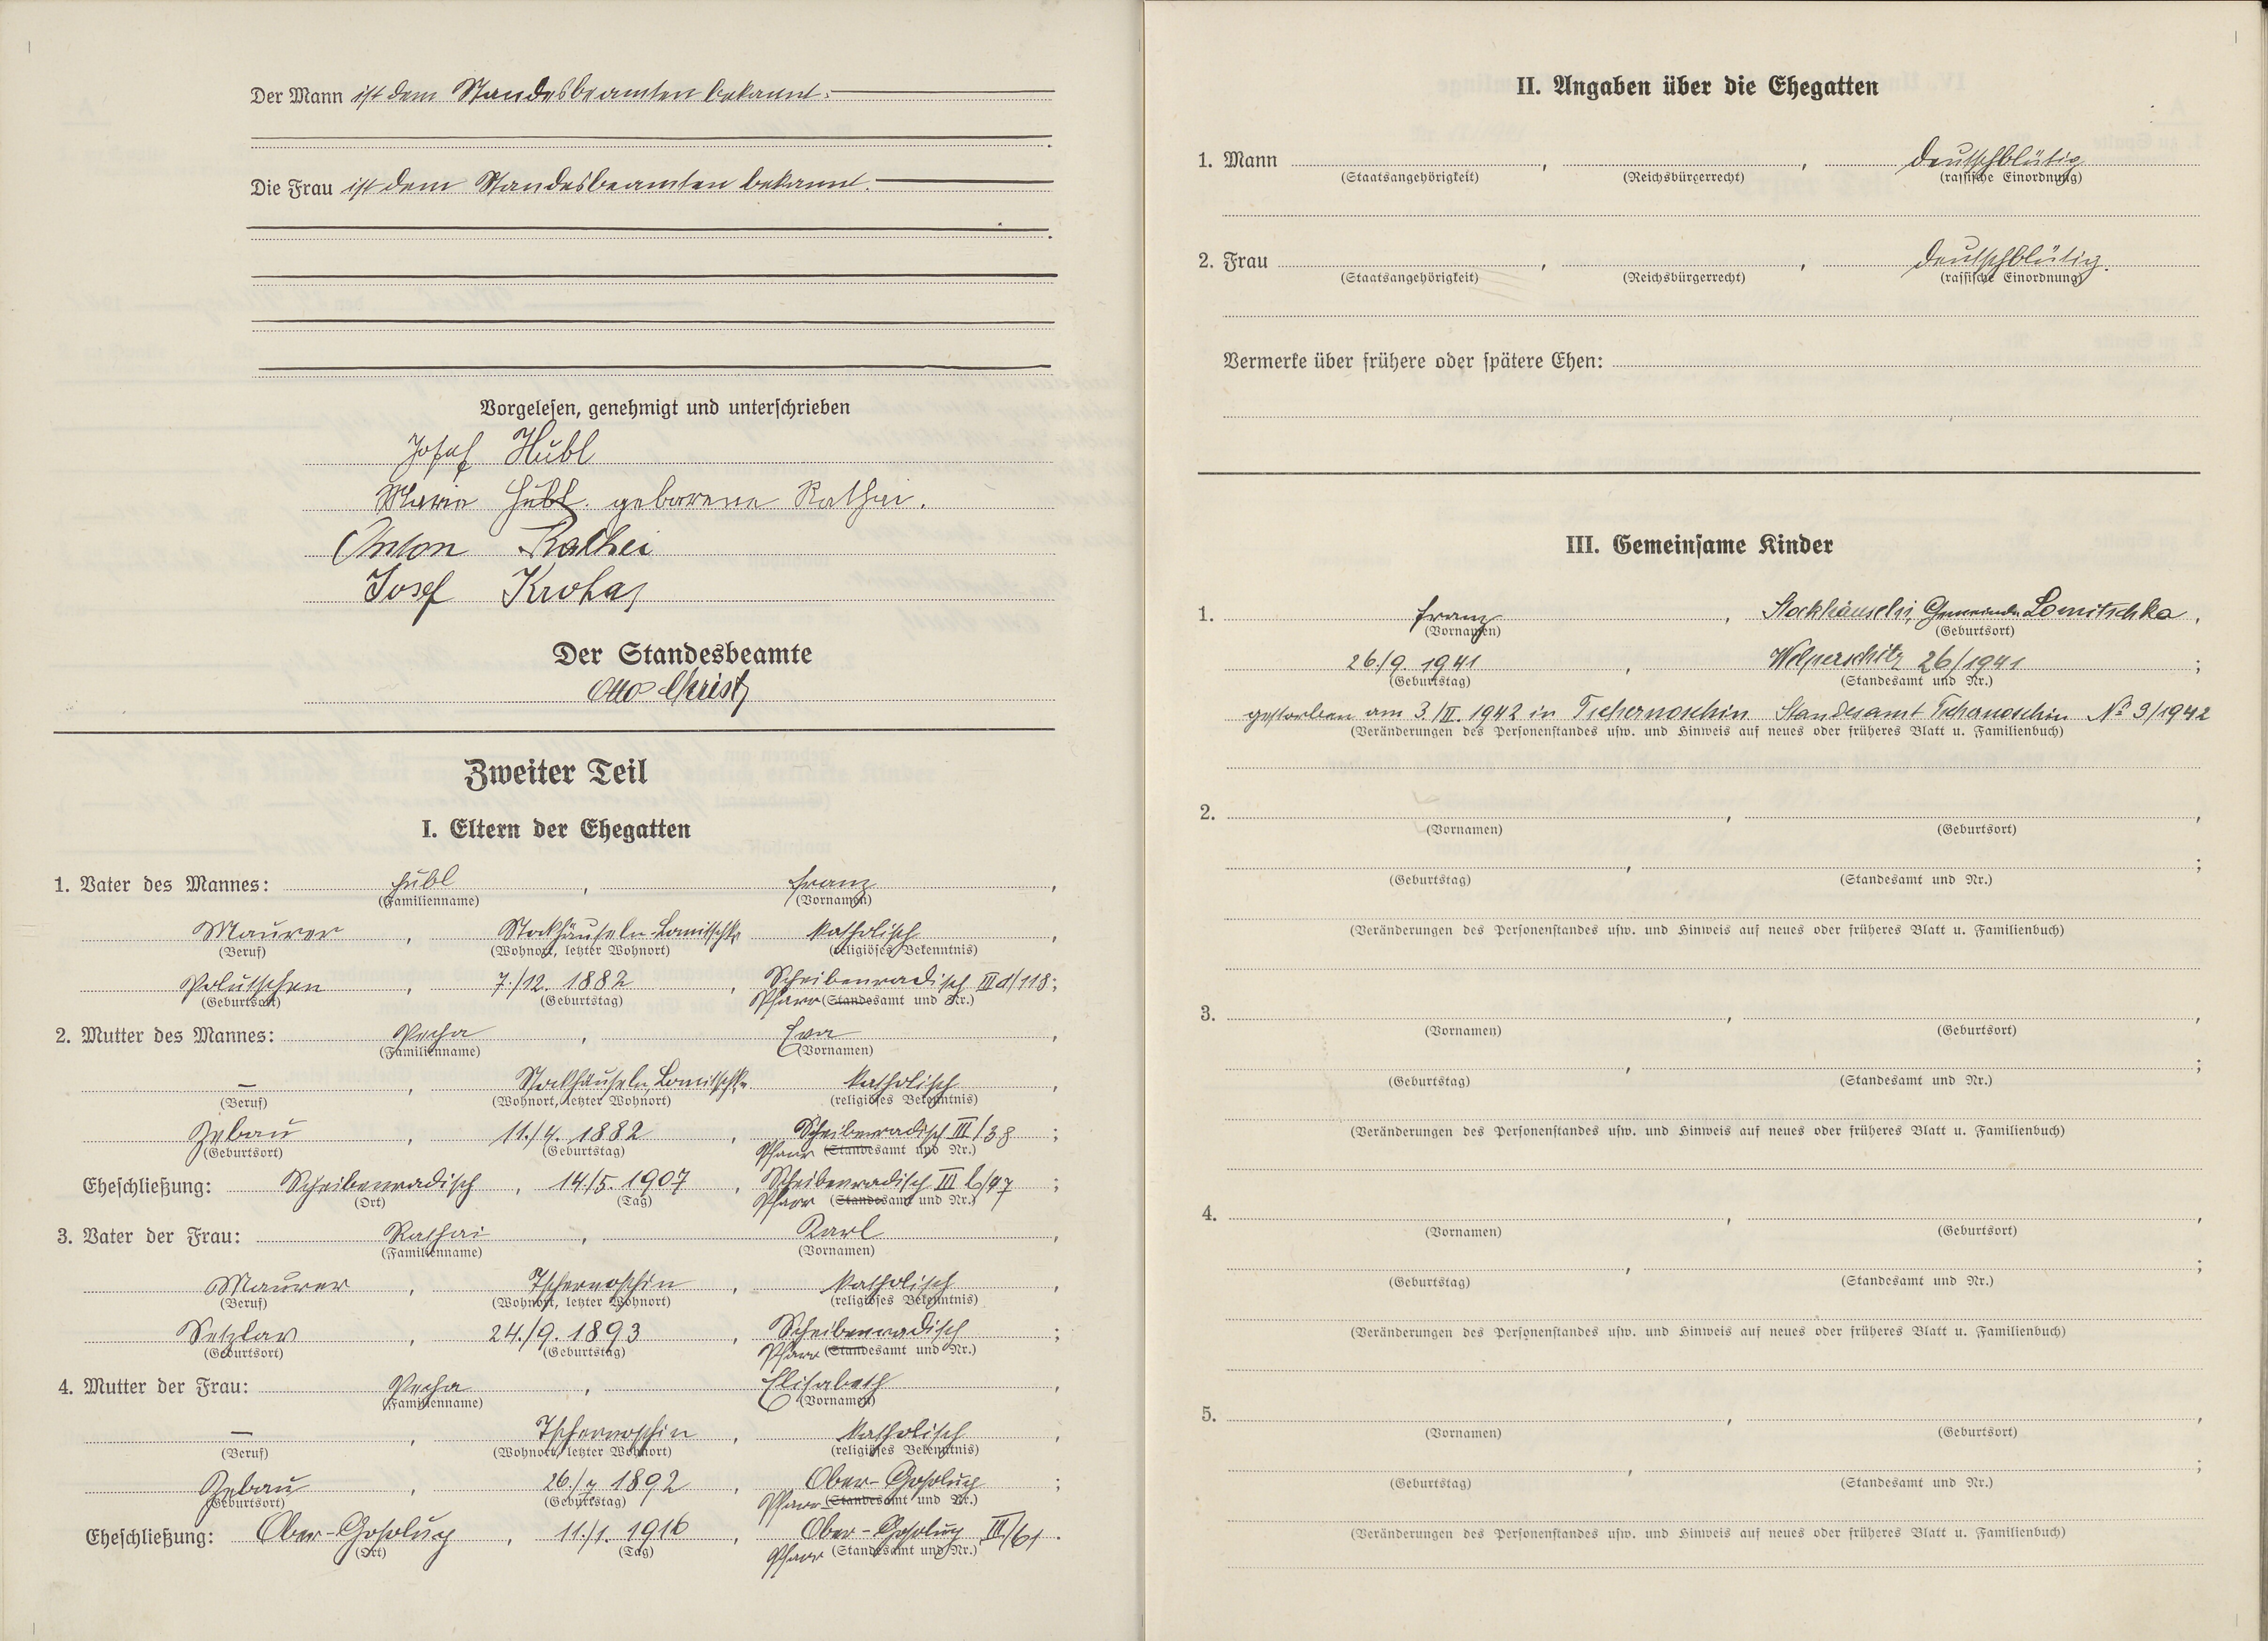 Der Mann ist dem Standesbeamten bekannt.
Die Frau ist dem Standesbeamten bekannt.
Vorgelesen, genehmigt und unterschrieben
Josef Hübl
Marie Hübl geborene Rathai.
Anton Rathei
Josef
Der Standesbeamte
Otto Christ
Zweiter Teil
I. Eltern der Ehegatten
1. Vater des Mannes: Hübl, Franz,
(Familienname) (Vornamen)
Maurer, Stockhäuseln-Lomitschka katholisch,
(Beruf) (Wohnort, letzter Wohnort) (religiöses Bekenntnis)
Polutschen, 7./12. 1882, Scheibenradisch III d/118;
(Geburtsort) (Geburtstag) Pfarr (Standesamt und Nr.)
2. Mutter des Mannes: Pecha, Eva,
(Familienname) (Vornamen)
–, Stockhäuseln, Lomitschka katholisch,
(Beruf) (Wohnort, letzter Wohnort) (religiöses Bekenntnis)
Zebau, 11./4. 1882, Scheibenradisch III/38;
(Geburtsort) (Geburtstag) Pfarr (Standesamt und Nr.)
Eheschließung: Scheibenradisch, 14/5. 1907, Scheibenradisch III b/97;
(Ort) (Tag) Pfarr (Standesamt und Nr.)
3. Vater der Frau: Rathai, Karl,
(Familienname) (Vornamen)
Maurer, Tschernoschin, katholisch,
(Beruf) (Wohnort, letzter Wohnort) (religiöses Bekenntnis)
Setzlav, 24./9. 1893, Scheibenradisch;
(Geburtsort) (Geburtstag) Pfarr (Standesamt und Nr.)
4. Mutter der Frau: Pecha, Elisabeth,
(Familienname) (Vornamen)
–, Tschernoschin, katholisch,
(Beruf) (Wohnort, letzter Wohnort) (religiöses Bekenntnis)
Zebau, 26./7 1892, Ober-Gosolup;
(Geburtsort) (Geburtstag) Pfarr (Standesamt und Nr.)
Eheschließung: Ober-Gosolup, 11./1. 1916, Ober-Gosolup III/61.
(Ort) (Tag) Pfarr (Standesamt und Nr.)
II. Angaben über die Ehegatten
1. Mann , , deutschblütig
(Staatsangehörigkeit) (Reichsbürgerrecht) (rassische Einordnung)
2. Frau , , deutschblütig.
(Staatsangehörigkeit) (Reichsbürgerrecht) (rassische Einordnung)
Vermerke über frühere oder spätere Ehen:
III. Gemeinsame Kinder
1. Franz, Stockhäuseln, Gemeinde Lomitschka,
(Vornamen) (Geburtsort)
26./9. 1941, Welperschitz 26/1941;
(Geburtstag) (Standesamt und Nr.)
gestorben am 3./II. 1942 in Tschernoschin Standesamt Tschernoschin No 3/1942
(Veränderungen des Personenstandes usw. und Hinweis auf neues oder früheres Blatt u. Familienbuch)
2. , ,
(Vornamen) (Geburtsort)
, ;
(Geburtstag) (Standesamt und Nr.)
(Veränderungen des Personenstandes usw. und Hinweis auf neues oder früheres Blatt u. Familienbuch)
3. , ,
(Vornamen) (Geburtsort)
, ;
(Geburtstag) (Standesamt und Nr.)
(Veränderungen des Personenstandes usw. und Hinweis auf neues oder früheres Blatt u. Familienbuch)
4. , ,
(Vornamen) (Geburtsort)
, ;
(Geburtstag) (Standesamt und Nr.)
(Veränderungen des Personenstandes usw. und Hinweis auf neues oder früheres Blatt u. Familienbuch)
5. , ,
(Vornamen) (Geburtsort)
, ;
(Geburtstag) (Standesamt und Nr.)
(Veränderungen des Personenstandes usw. und Hinweis auf neues oder früheres Blatt u. Familienbuch)